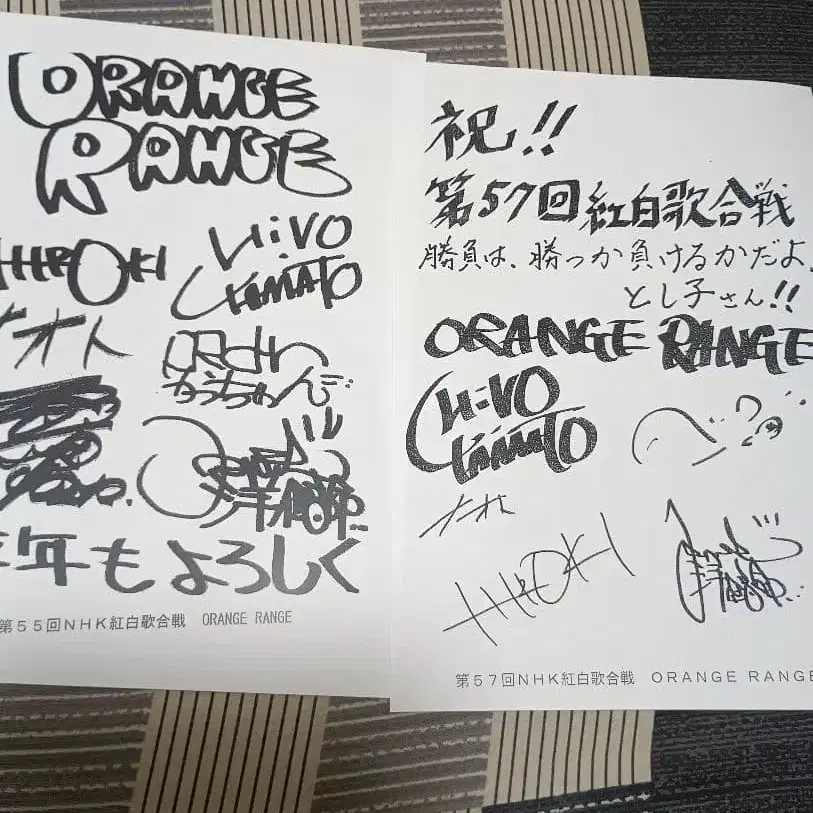 ORANGE
RANGE
HIROKI
HiRO
YAMATO
ナオト
かっちゃん
年もよろしく
第55回NHK紅白歌合戦 ORANGE RANGE
祝!!
第57回紅白歌合戦
勝負は、勝つか負けるかだよ、
とし子さん!!
ORANGE RANGE
HiRO
YAMATO
ナオト
HIROKI
第57回NHK紅白歌合戦 ORANGE RANGE